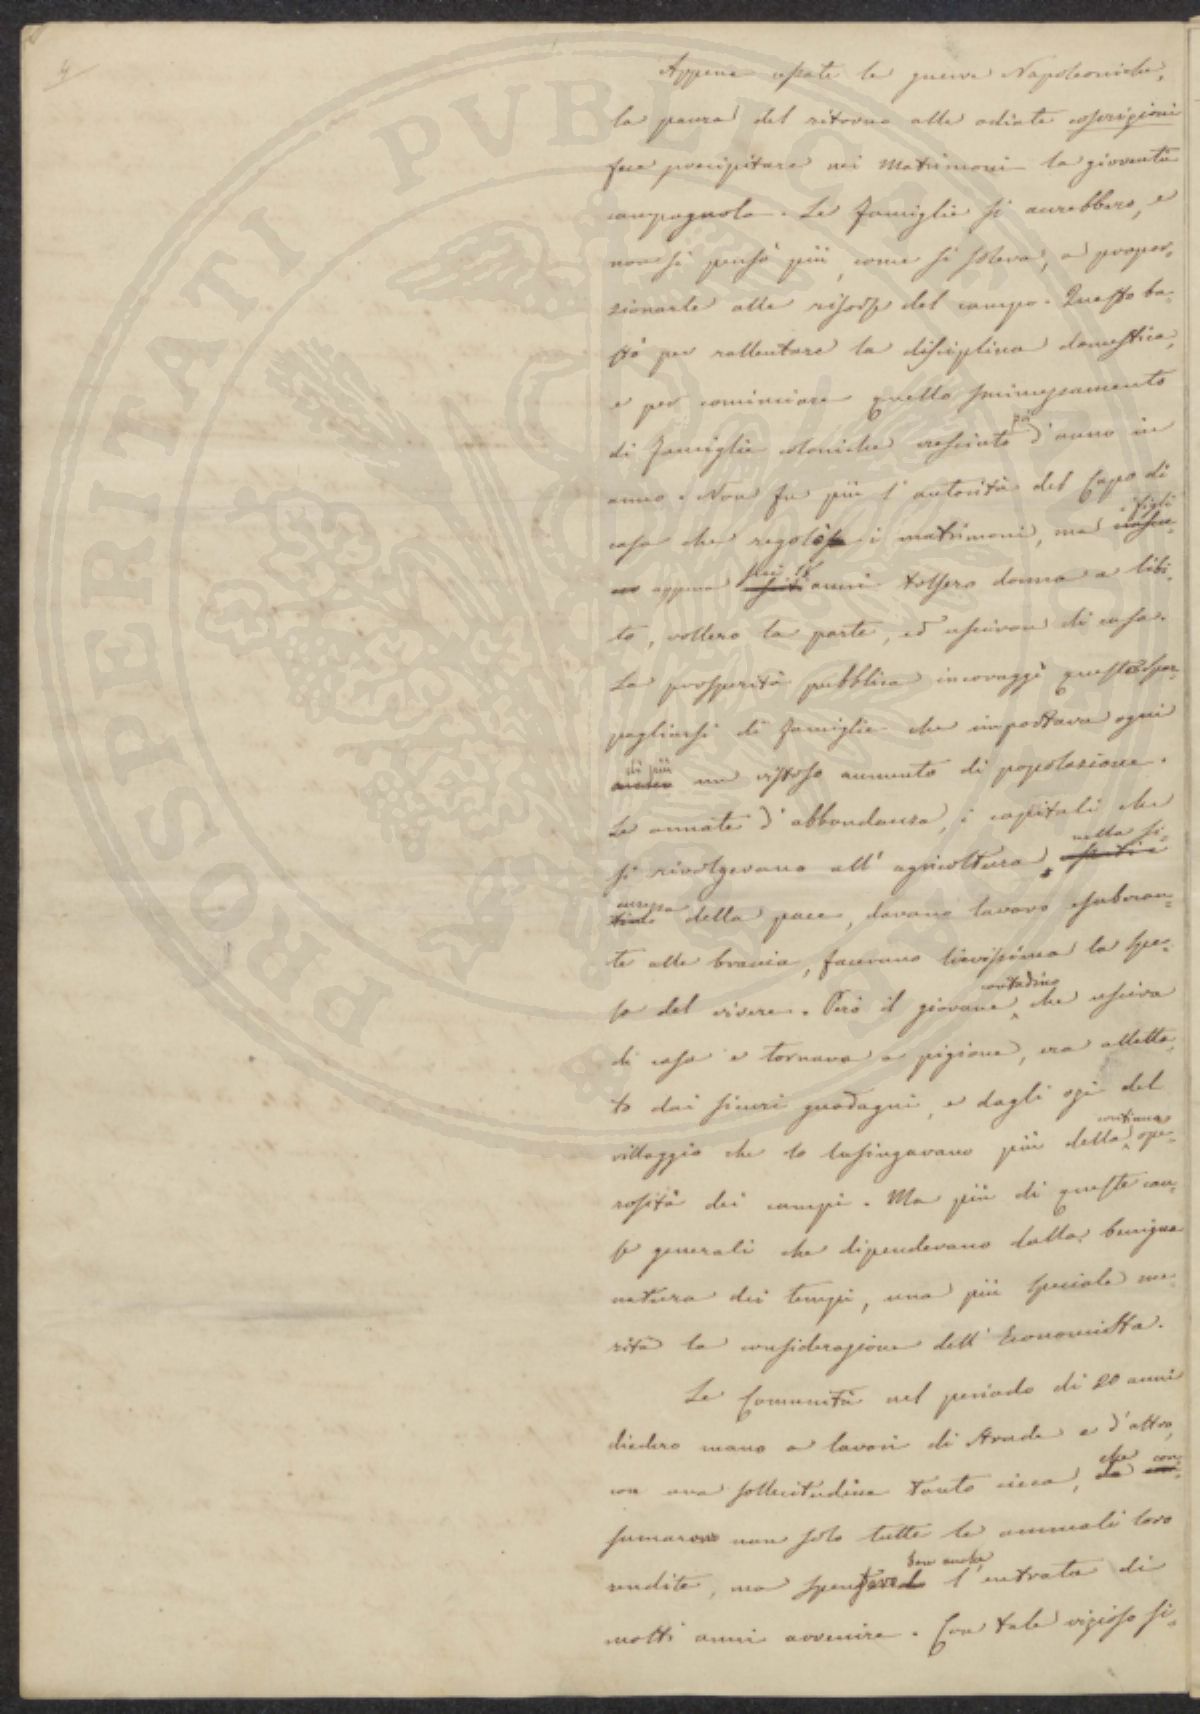 4
Appena cessate le guerre Napoleoniche,
la paura del ritorno alle odiate coscrizioni
fece precipitare nei Matrimoni la gioventù
campagnola. Le famiglie si accrebbero, e
non si pensò più, come si soleva, a propor-
zionarle alle risorse del campo. Questo ba-
stò per rallentare la disciplina domestica,
e per cominciare quello sminuzzamento
di famiglie coloniche cresciuto poi d'anno in
anno. Non fu più l'autorità del Capo di
casa che regolò i matrimoni, ma i figli
appena anni tolsero donna a libi-
to, vollero la parte, ed uscivan di casa.
La prosperità pubblica incoraggì questo spar-
pagliarsi di famiglie che importava ogni
di più un vistoso aumento di popolazione.
Le annate d'abbondanza, i capitali che
si rivolgevano all'agricoltura, nella si-
curezza della pace, davano lavoro esuberan-
te alle braccia, facevano lievissima la spe-
sa del vivere. Però il giovane contadino che usciva
di casa e tornava a pigione, era alletta-
to dai sicuri guadagni, e dagli ozi del
villaggio che lo lusingavano più della continua ope-
rosità dei campi. Ma più di queste cau-
se generali che dipendevano dalla benigna
natura dei tempi, una più speciale me-
rita la considerazione dell'Economista.
Le Comunità nel periodo di 20 anni
diedero mano a lavori di strade e d'altro,
con una sollecitudine tanto cieca, che con-
sumarono non solo tutte le annuali loro
rendite, ma spesero ben anche l'entrata di
molti anni avvenire. Con tale vizioso si-
PROSPERITATI PVBLICAE AVGENDAE